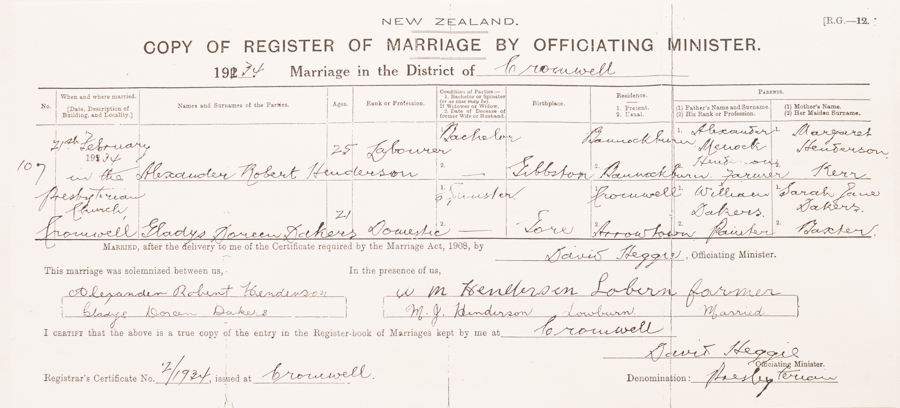 NEW ZEALAND.
[R.G.—12.
COPY OF REGISTER OF MARRIAGE BY OFFICIATING MINISTER.
1934 Marriage in the District of Cromwell
No.
When and where married.
[Date, Description of Building, and Locality.]
Names and Surnames of the Parties.
Ages.
Rank or Profession.
Condition of Parties—
1. Bachelor or Spinster (or as case may be).
If Widower or Widow,
2. Date of Decease of former Wife or Husband.
Birthplace.
Residence.
1. Present.
2. Usual.
Parents.
(1) Father's Name and Surname.
(2) His Rank or Profession.
(1) Mother's Name.
(2) Her Maiden Surname.
107
21st February
1934
in the
Presbyterian
Church
Cromwell
Alexander Robert Henderson
25
Labourer
Bachelor
2. —
Gibbston
Bannockburn
Bannockburn
1. Alexander
Henderson
2. Farmer
1. Margaret
Henderson
2. Kerr
Gladys Doreen Dakers
21
Domestic
1. Spinster
2. —
Gore
1. Cromwell
2. Arrowtown
1. William
Dakers.
2. Painter
1. Sarah Jane
Dakers.
2. Baxter.
Married, after the delivery to me of the Certificate required by the Marriage Act, 1908, by
David Heggie, Officiating Minister.
This marriage was solemnized between us,
In the presence of us,
Alexander Robert Henderson
W M Henderson Lobern farmer
Gladys Doreen Dakers
M. J. Henderson Lowburn Married
I certify that the above is a true copy of the entry in the Register-book of Marriages kept by me at Cromwell
David Heggie
Officiating Minister.
Registrar's Certificate No. 2/1934, issued at Cromwell.
Denomination: Presbyterian